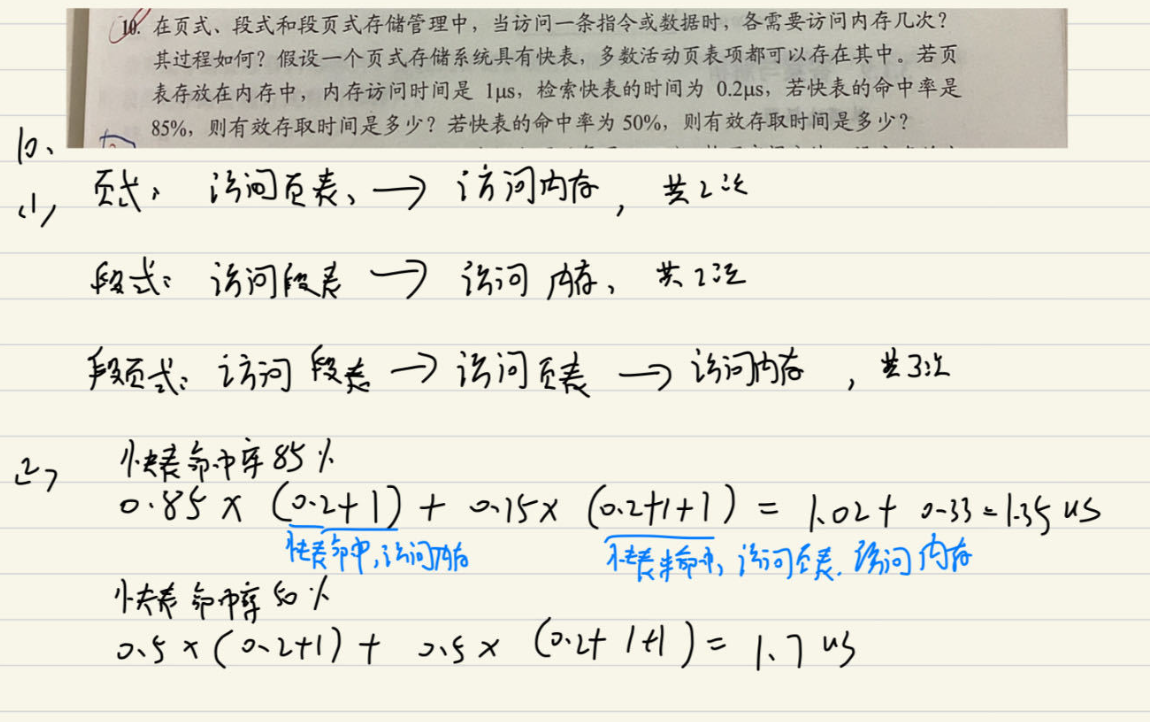 10. 在页式、段式和段页式存储管理中，当访问一条指令或数据时，各需要访问内存几次？
其过程如何？假设一个页式存储系统具有快表，多数活动页表项都可以存在其中。若页
表存放在内存中，内存访问时间是 1μs，检索快表的时间为 0.2μs，若快表的命中率是
85%，则有效存取时间是多少？若快表的命中率为 50%，则有效存取时间是多少？
10、
(1) 页式：访问页表、→ 访问内存，共2次
段式：访问段表 → 访问内存，共2次
段页式：访问段表 → 访问页表 → 访问内存，共3次
(2) 快表命中率 85%
0.85 × (0.2+1) + 0.15× (0.2+1+1) = 1.02+ 0.33=1.35 us
快表命中，访问内存 快表未命中，访问页表，访问内存
快表命中率 50%
0.5 × (0.2+1) + 0.5 × (0.2+1+1) = 1.7 us